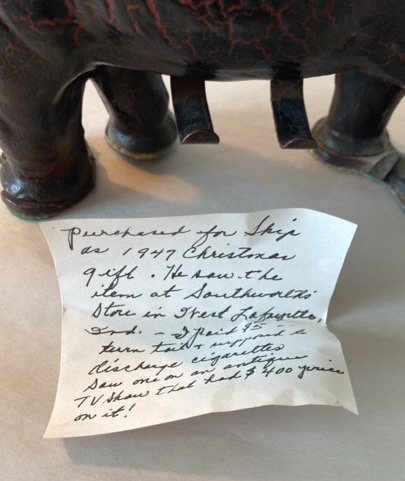 purchased for Skip
as 1947 Christmas
gift. He saw the
item at Southworth's
Store in West Lafayette,
Ind. - I paid $5 -
turn tail & supposed to
discharge cigarettes
Saw one on an antique
TV Show that had $400 price
on it!